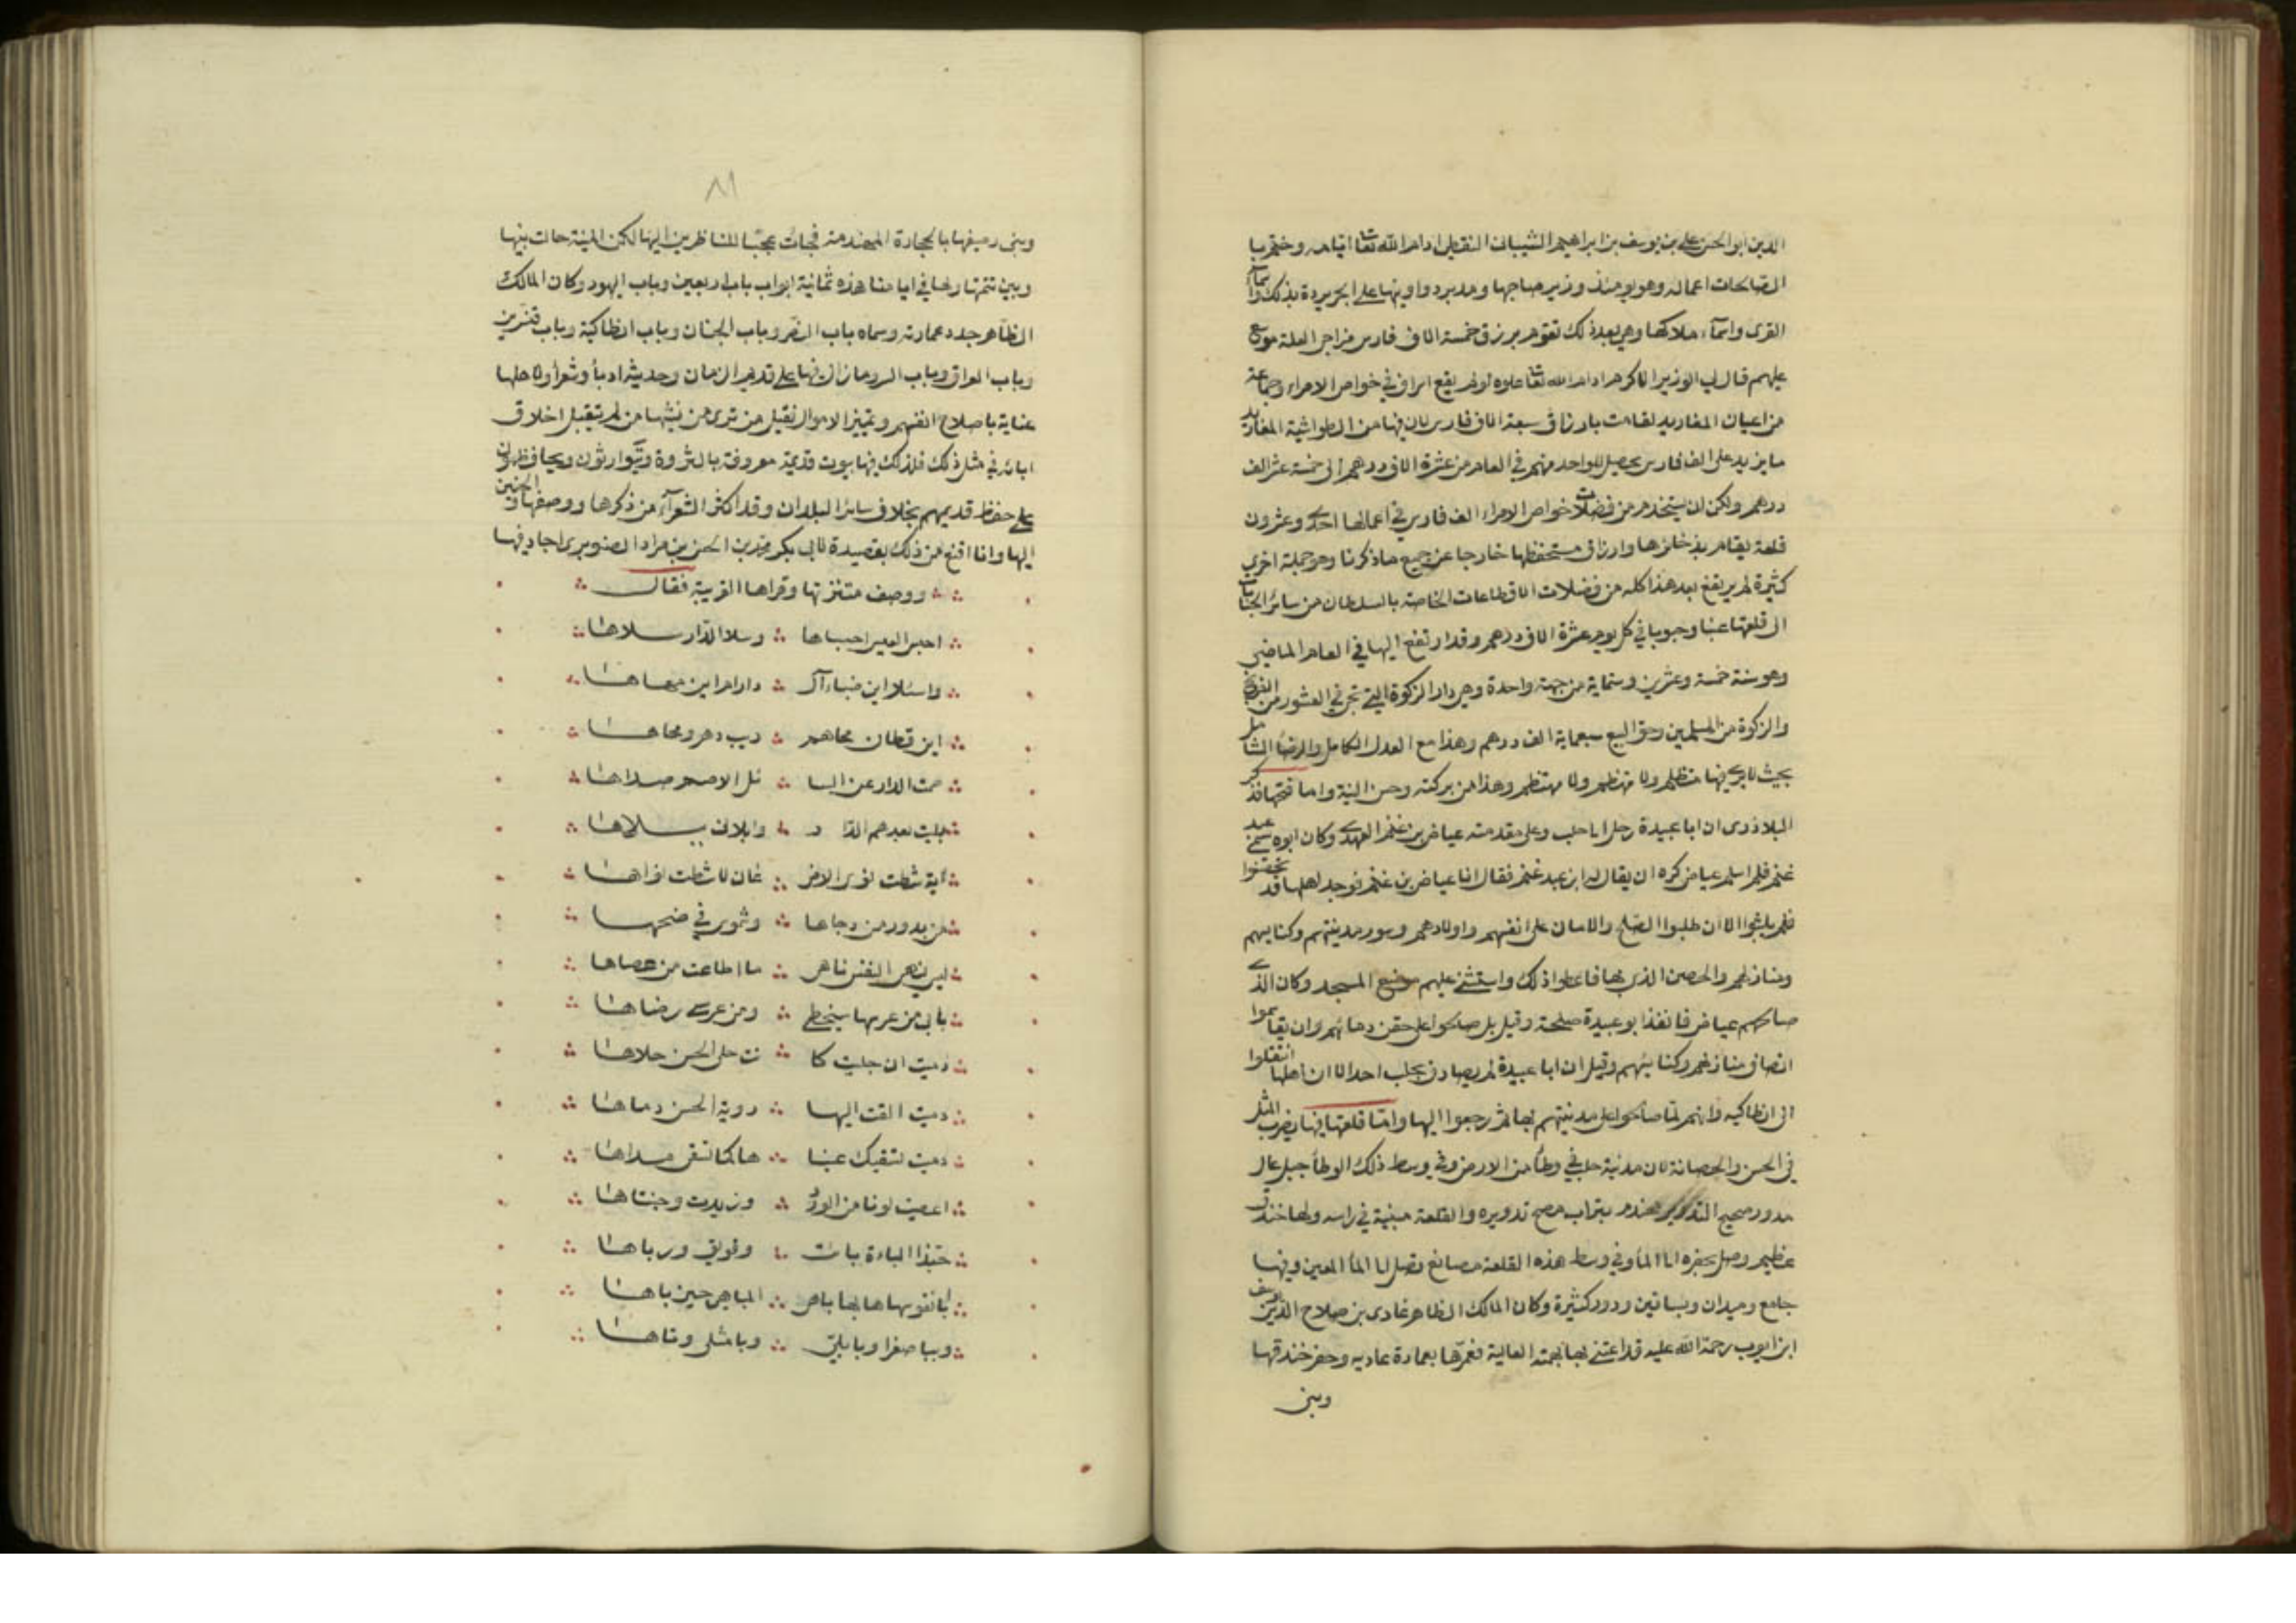 الدين ابو الحسن علي بن يوسف بن ابراهيم الشيباني القفطي ادام الله تعا ايامه وختم با
الصالحات اعماله وهو يومئذ وزير صاحبها ومدبر دواوينها على الجريدة بذلك واسمآ
القرى واسمآء ملاكها وهي بعد ذلك تقوم برزق خمسة الاف فارس مزاحي العلة موسع
عليهم قال لي الوزير الاكرم ادام الله تعا علوه لو لم يقع اسراف في خواص الامراء وجماعة
من اعيان المفاريد لقامت بارزاق سبعة الاف فارس لان فيها من الطواشية المفاريد
ما يزيد على الف فارس يحصل للواحد منهم في العام من عشرة الاف درهم الى خمسة عشر الف
درهم ولكن ان يستخدم من فضلات خواص الامراء الف فارس في اعمالها احدى وعشرون
قلعة يقام بذخائرها وارزاق مستحفظها خارجا عن جميع ما ذكرنا وهو جملة اخرى
كثيرة ثم يرتفع بعد هذا كله من فضلات الاقطاعات الخاصة بالسلطان من سائر الجبايات
الى قلعتها عنبا وحبوبا في كل يوم عشرة الاف درهم وقد ارتفع اليها في العام الماضي
وهو سنة خمسة وعشرين وستماية من جهة واحدة وهي دار الزكوة التي تجي فيها العشور من الفرنج
والزكوة من المسلمين وحق البيع سبعماية الف درهم وهذا مع العدل الكامل والرضا الشامل
بحيث لا يرى فيها متظلم ولا متهضم ولا مهتظم وهذا من بركته وحسن النية واما فتحها فذكر
البلاذرى ان ابا عبيدة رحل الى حلب وعلى مقدمته عياض بن غنم الفهرى وكان ابوه يسمى عبد
غنم فلما اسلم عياض كره ان يقال له ابن عبد غنم فقال انا عياض بن غنم فوجد اهلها قد تحصنوا
فلم يلبثوا الا ان طلبوا الصلح والامان على انفسهم واولادهم وسور مدينتهم وكنايسهم
ومنازلهم والحصن الذي بها فاعطوا ذلك واستثنى عليهم موضع المسجد وكان الذى
صالحهم عياض فانفذ ابو عبيدة صلحه وقيل بل صالحوا على حقن دمائهم وان يقاسموا
انصاف منازلهم وكنائسهم وقيل ان ابا عبيدة لم يصادف بحلب احدا لان اهلها انتقلوا
الى انطاكيه وانهم لما صالحوا على مدينتهم بها ثم رجعوا اليها واما قلعتها فبها يضرب المثل
في الحسن والحصانة لان مدينة حلب في وطأ من الارض وفي وسط ذلك الوطأ جبل عال
مدور صحيح التدوير مهندم بتراب صح تدويره والقلعة مبنية في راسه ولها خندق
عظيم وصل بحفره الى المأ وفي وسط هذه القلعة مصانع تصل الى المأ المعين وفيها
جامع وميدان وبساتين ودور كثيرة وكان المالك الظاهر غازى بن صلاح الدين يوسف
ابن ايوب رحمة الله عليه قد اعتنى بها بهمته العالية فعمرها بعمارة عاديه وحفر خندقها
وبنى
٨١
وبنى رصيفها بالحجارة المهندمة فجات عجبا للناظرين اليها لكن المنية حالت بينها
وبين تتمتها ولها في ايامنا هذه ثمانية ابواب باب اربعين وباب اليهود وكان المالك
الظاهر جدد عمارته وسماه باب النصر وباب الجنان وباب انطاكية وباب قنسرين
وباب العراق وباب السر وما زال فيها على قديم الزمان وحديثه ادبأ وشعرأ ولاهلها
عناية باصلاح انفسهم وتمييز الاموال فقيل من ترى من نشئها من لم يتقبل اخلاق
ابائه في مثل ذلك فلذلك فيها بيوت قديمة معروفة بالثروة ويتوارثون ويحافظون
على حفظ قديمهم بخلاف سائر البلدان وقد اكثر الشعرآء من ذكرها ووصفها والحنين
اليها وانا اقنع من ذلك بقصيدة لابي بكر محمد بن الحسن بن مراد الصنوبرى اجاد فيها
ووصف متنزهاتها وقراها القريبة فقال
احبسا العيس احبساها وسلا الدار سلاها
واسئلا اين ظباء آل دارام اين مهاها
اين قطان محاهم ريب دهر ومحاها
صمت الدار عن السا ئل لا صم صداها
بليت بعدهم الدا ر وابلاني بلاها
آية شطت نوى الاظ عان لا شطت نواها
من بدور من دجاها وشموس في ضحيها
ليس ينهى النفس ناهى ما اطاعت من عصاها
بابي من عرسها سخطى ومن عرسى رضاها
دمية ان جليت كا نت حلى الحسن حلاها
دمية القت اليها رؤية الحسن دماها
دمية تسقيك عينا ها كما تسقى يداها
اعطيت لونا من الورد وزيدت وجنتاها
حبذا الباءة باءت وقويق ورباها
بانقوسها بها باهى المباهي حين باها
وبباصفرا وبابلى وبا مثلى وتاها